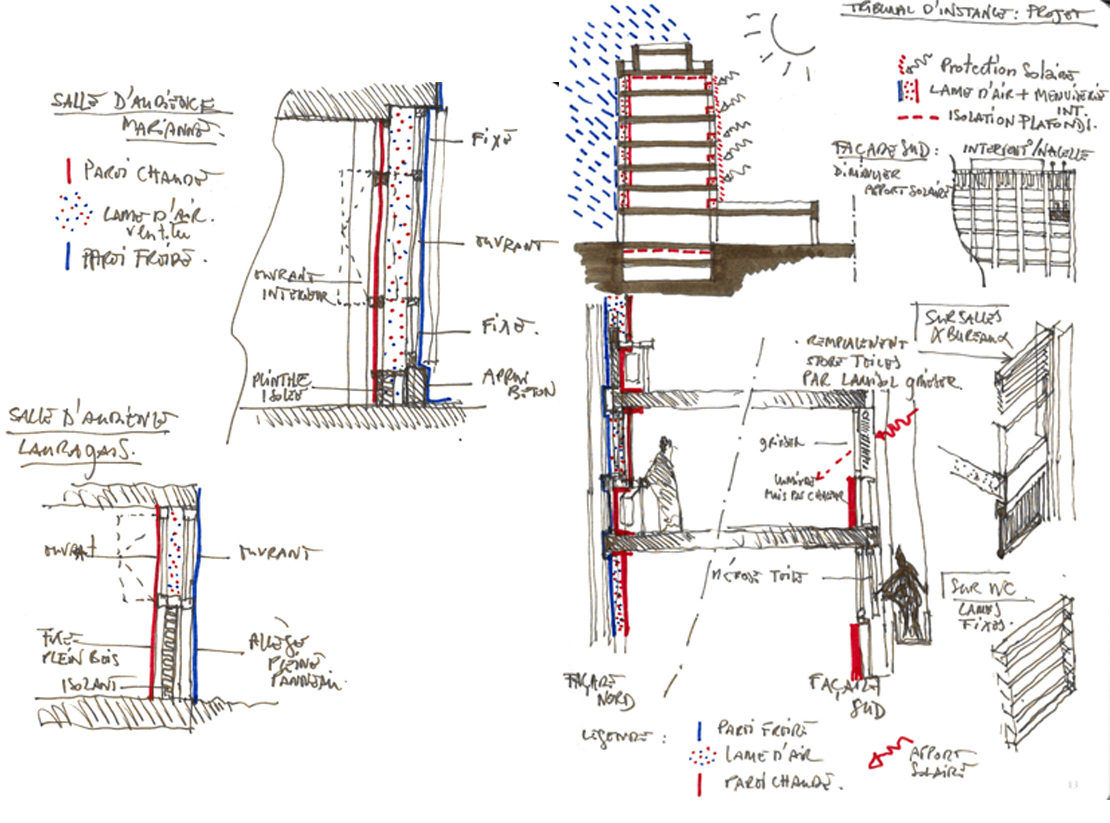 SALLE D'AUDIENCE
MARIANNE.
PAROI CHAUDE
LAME D'AIR.
ventilé
PAROI FROIDE.
FIXE
OUVRANT
OUVRANT
INTERIEUR
FIXE.
PLINTHE
ISOLÉE
APPUI
BETON
SALLE D'AUDIENCE
LAURAGAIS.
OUVRANT
OUVRANT
FIXE
PLEIN BOIS
ISOLANT
ALLEGE
PLEINE
PANNEAU.
TRIBUNAL D'INSTANCE : PROJET
PROTECTION SOLAIRE
LAME D'AIR + MENUISERIE
INT.
ISOLATION PLAFONDS.
FAÇADE SUD :
DIMINUER
APPORT SOLAIRE
NACELLE
SUR SALLES
& BUREAUX
REMPLACEMENT
STORE TOILES
PAR LAMISOL GRIESSER.
GRIESSER
LUMIÈRE
MAIS PAS CHALEUR
STORE TOILE
SUR WC.
LAMES
FIXES.
FAÇADE
NORD
FAÇADE
SUD
LEGENDE :
PAROI FROIDE
LAME D'AIR
PAROI CHAUDE.
APPORT
SOLAIRE
13